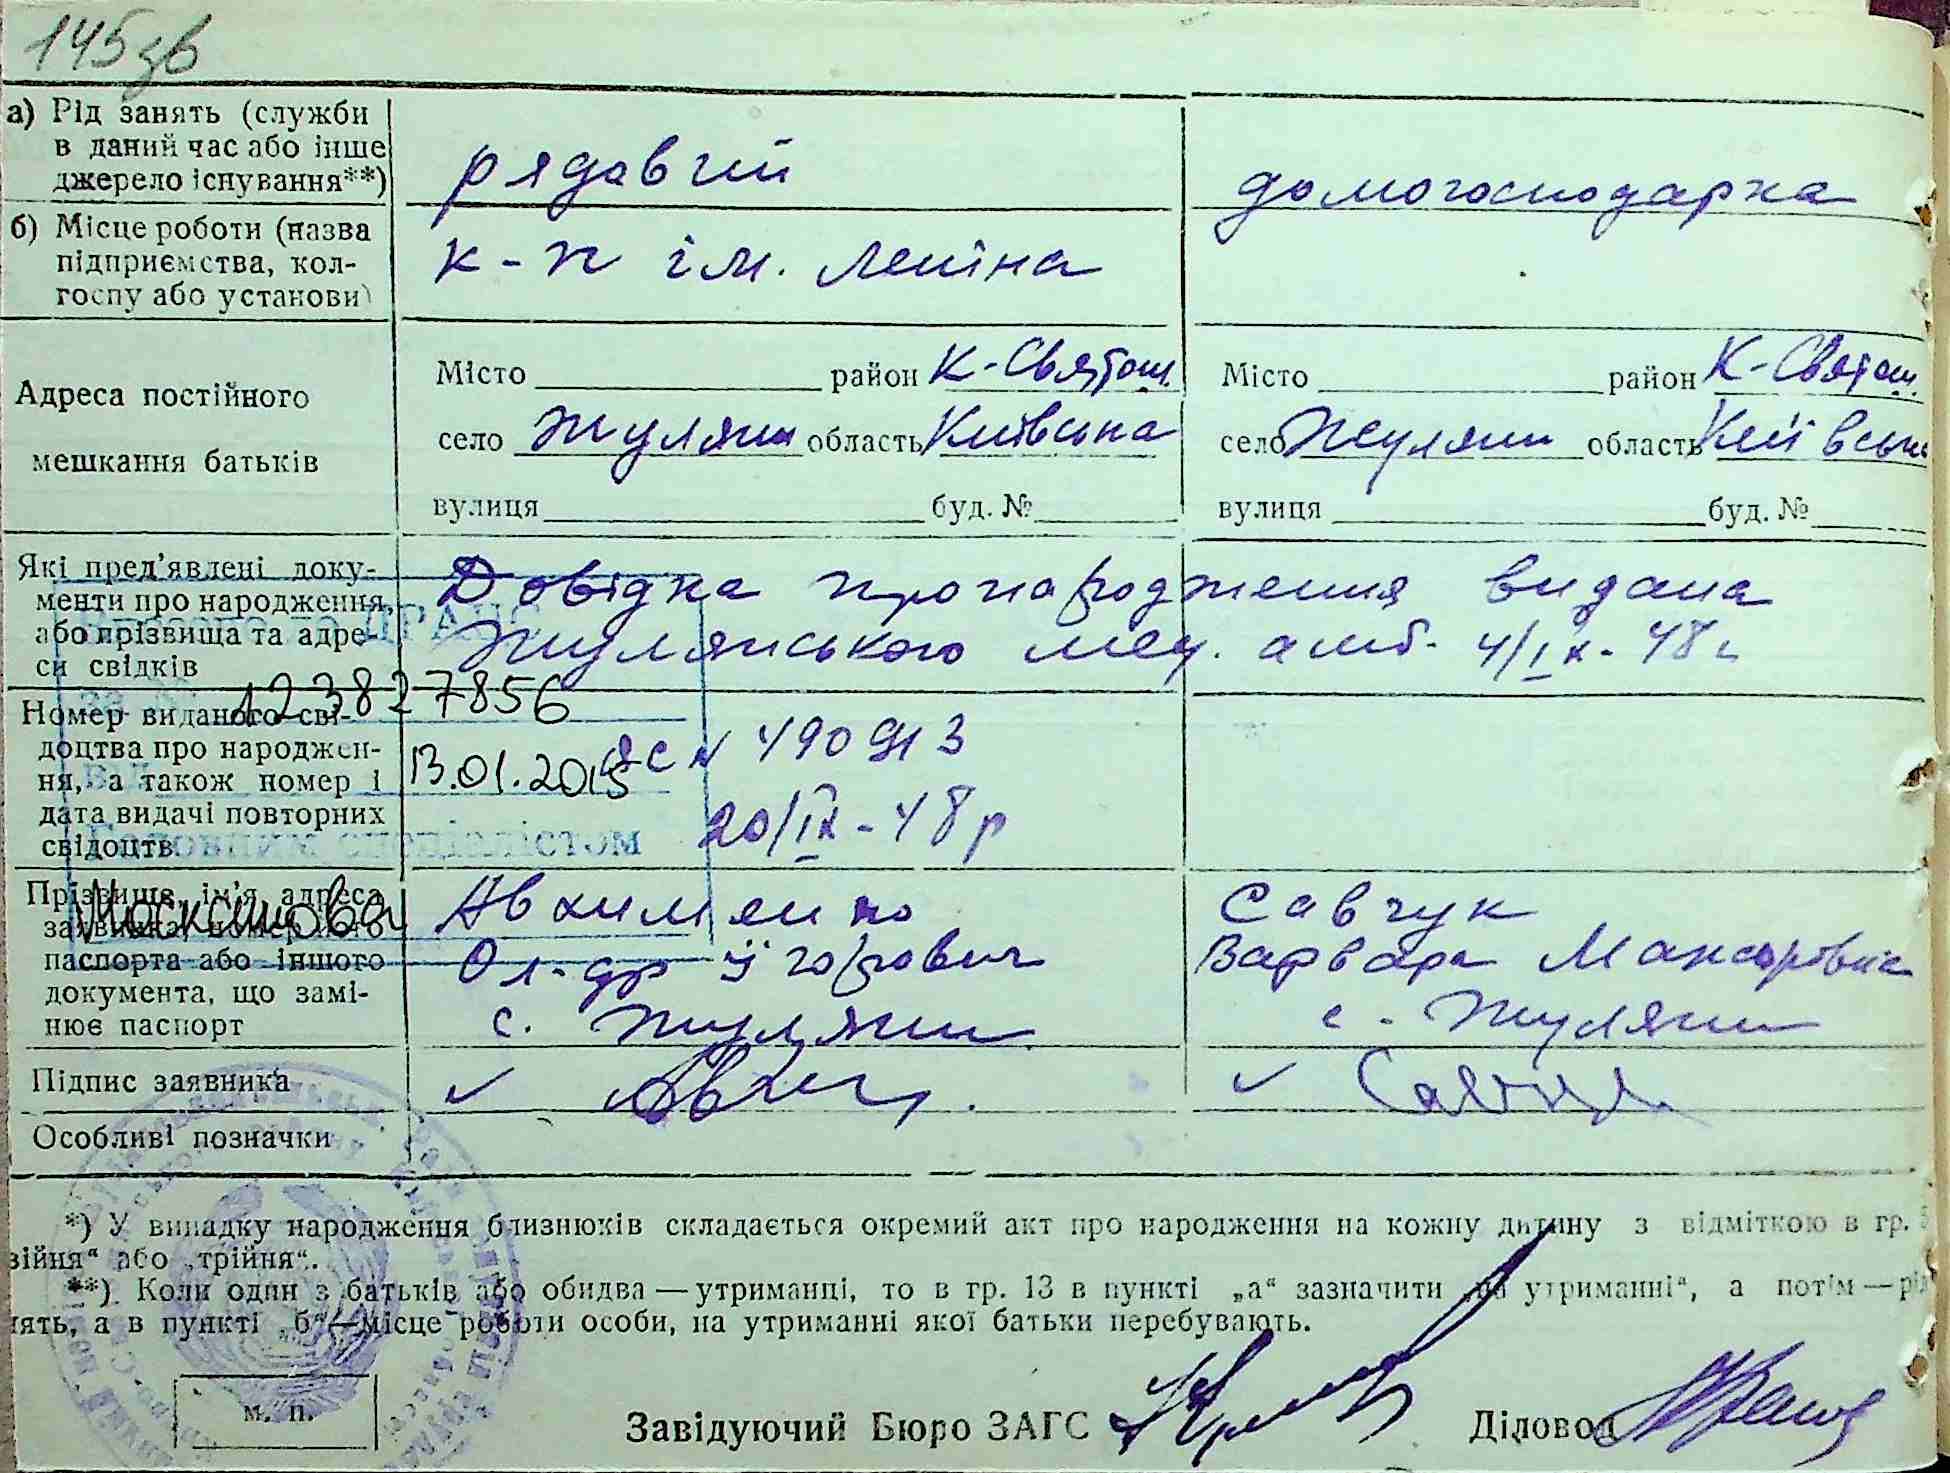 145зв
а) Рід занять (служби
в даний час або інше
джерело існування**)
рядовий
домогосподарка
б) Місце роботи (назва
підприємства, кол-
госпу або установи)
к-п ім. Леніна
Адреса постійного
мешкання батьків
Місто район К-Святош.
село Жуляни область Київська
вулиця буд. №
Місто район К-Святош.
село Жуляни область Київська
вулиця буд. №
Які пред'явлені доку-
менти про народження,
або прізвища та адре-
си свідків
Довідка про народження видана
Жулянською мед. амб. 4/ІХ-48 р
ДРАЦС
123827856
13.01.2015
Головним спеціалістом
Номер виданого сві-
доцтва про народжен-
ня, а також номер і
дата видачі повторних
свідоцтв.
N 490913
20/ІХ-48 р
Прізвище, ім'я, адреса
заявника, номер його
паспорта або іншого
документа, що замі-
нює паспорт
Авхименко
Ол-др Єгорович
с. Жуляни
Савчук
Варвара
с. Жуляни
Підпис заявника
Особливі позначки
*) У випадку народження близнюків складається окремий акт про народження на кожну дитину з відміткою в гр. 5
війня" або „трійня".
**) Коли один з батьків або обидва — утриманці, то в гр. 13 в пункті „а" зазначити „на утриманні", а потім — рід
нять, а в пункті „б"—місце роботи особи, на утриманні якої батьки перебувають.
М. П.
Завідуючий Бюро ЗАГС
Діловод